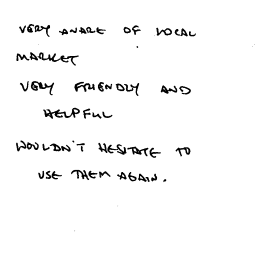 VERY AWARE OF LOCAL
MARKET
VERY FRIENDLY AND
HELPFUL
WOULDN'T HESITATE TO
USE THEM AGAIN.